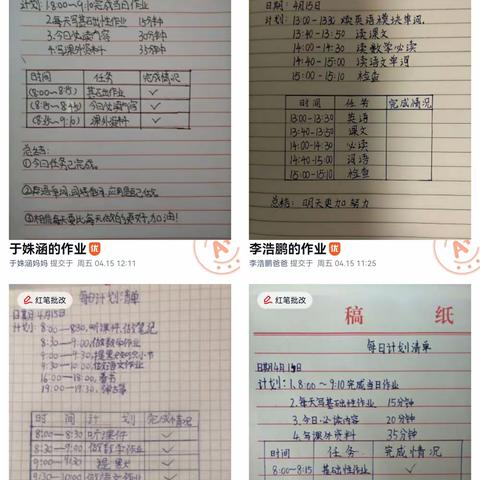 计划:1.8:00~9:10完成当日作业
2.每天写基础性作业 15分钟
3.今日必读内容 30分钟
4.写课外资料 35分钟
时间 任务 完成情况
(8:00~8:15) 基础作业 ✓
(8:15~8:45) 今日必读内容 ✓
(8:35~9:10) 课外资料 ✓
总结:
①今日任务已完成。
于姝涵的作业 优
于姝涵妈妈 提交于 周五 04.15 12:11
日期:4月15日
计划:13:00-13:30 读英语模块单词
13:40-13:50 读课文
14:00-14:30 读数学必读
14:40-15:00 读语文单词
15:00-15:10 检查
时间 任务 完成情况
13:00-13:30 英语
13:40-13:50 课文
14:00-14:30 必读
14:40-15:00 词语
15:00-15:10 检查
总结:明天更加努力
李浩鹏的作业 优
李浩鹏爸爸 提交于 周五 04.15 11:25
红笔批改
每日计划清单
日期4月15日
计划:8:00—8:30,听课件,做笔记
8:30—9:00,做数学作业
9:00—9:30
9:30—10:00做语文作业
16:00—18:00,看书
19:00—19:30
时间 计划 完成情况
8:00—8:30 听课件
8:30—9:00 做数学作业
9:00—9:30
9:30—10:00 做语文作业
红笔批改
稿 纸
每日计划清单
日期4月15日
计划:1.8:00~9:10完成当日作业
2.每天写基础性作业 15分钟
3.今日必读内容 20分钟
4.写课外资料 35分钟
时间 任务 完成情况
8:00-8:15 基础性作业 ✓